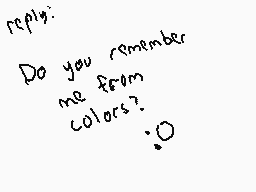 reply:
Do you remember
me from
colors?